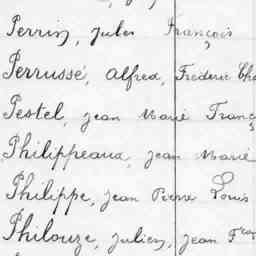 Perrin, Jules François
Perrussé, Alfred, Frédéric Cha
Pestel, Jean Marie Franç
Philippeaux, Jean Marie
Philippe, Jean Pierre Louis
Philouze, Julien, Jean Fran